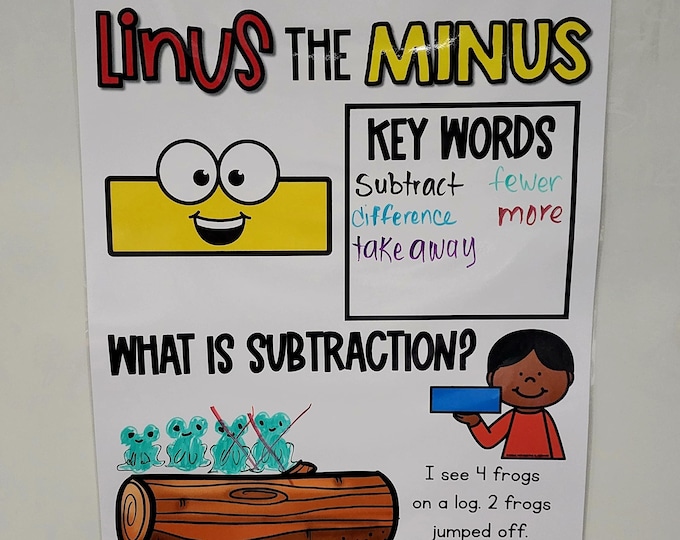 LINUS THE MINUS
KEY WORDS
Subtract fewer
difference more
take away
WHAT IS SUBTRACTION?
I see 4 frogs
on a log. 2 frogs
jumped off.